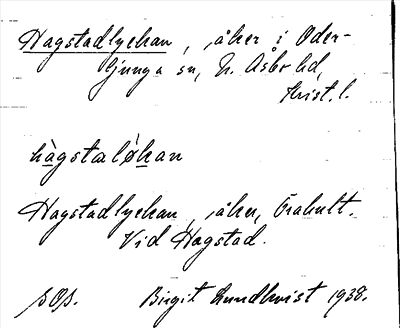 Hagstadlyckan, åker i Oder-
ljunga sn, N. Åsbo hd,
Krist. l.
hàgstaløkan
Hagstadlyckan, åker, Örahult.
Vid Hagstad.
SOS. Birgit Lundkvist 1938.